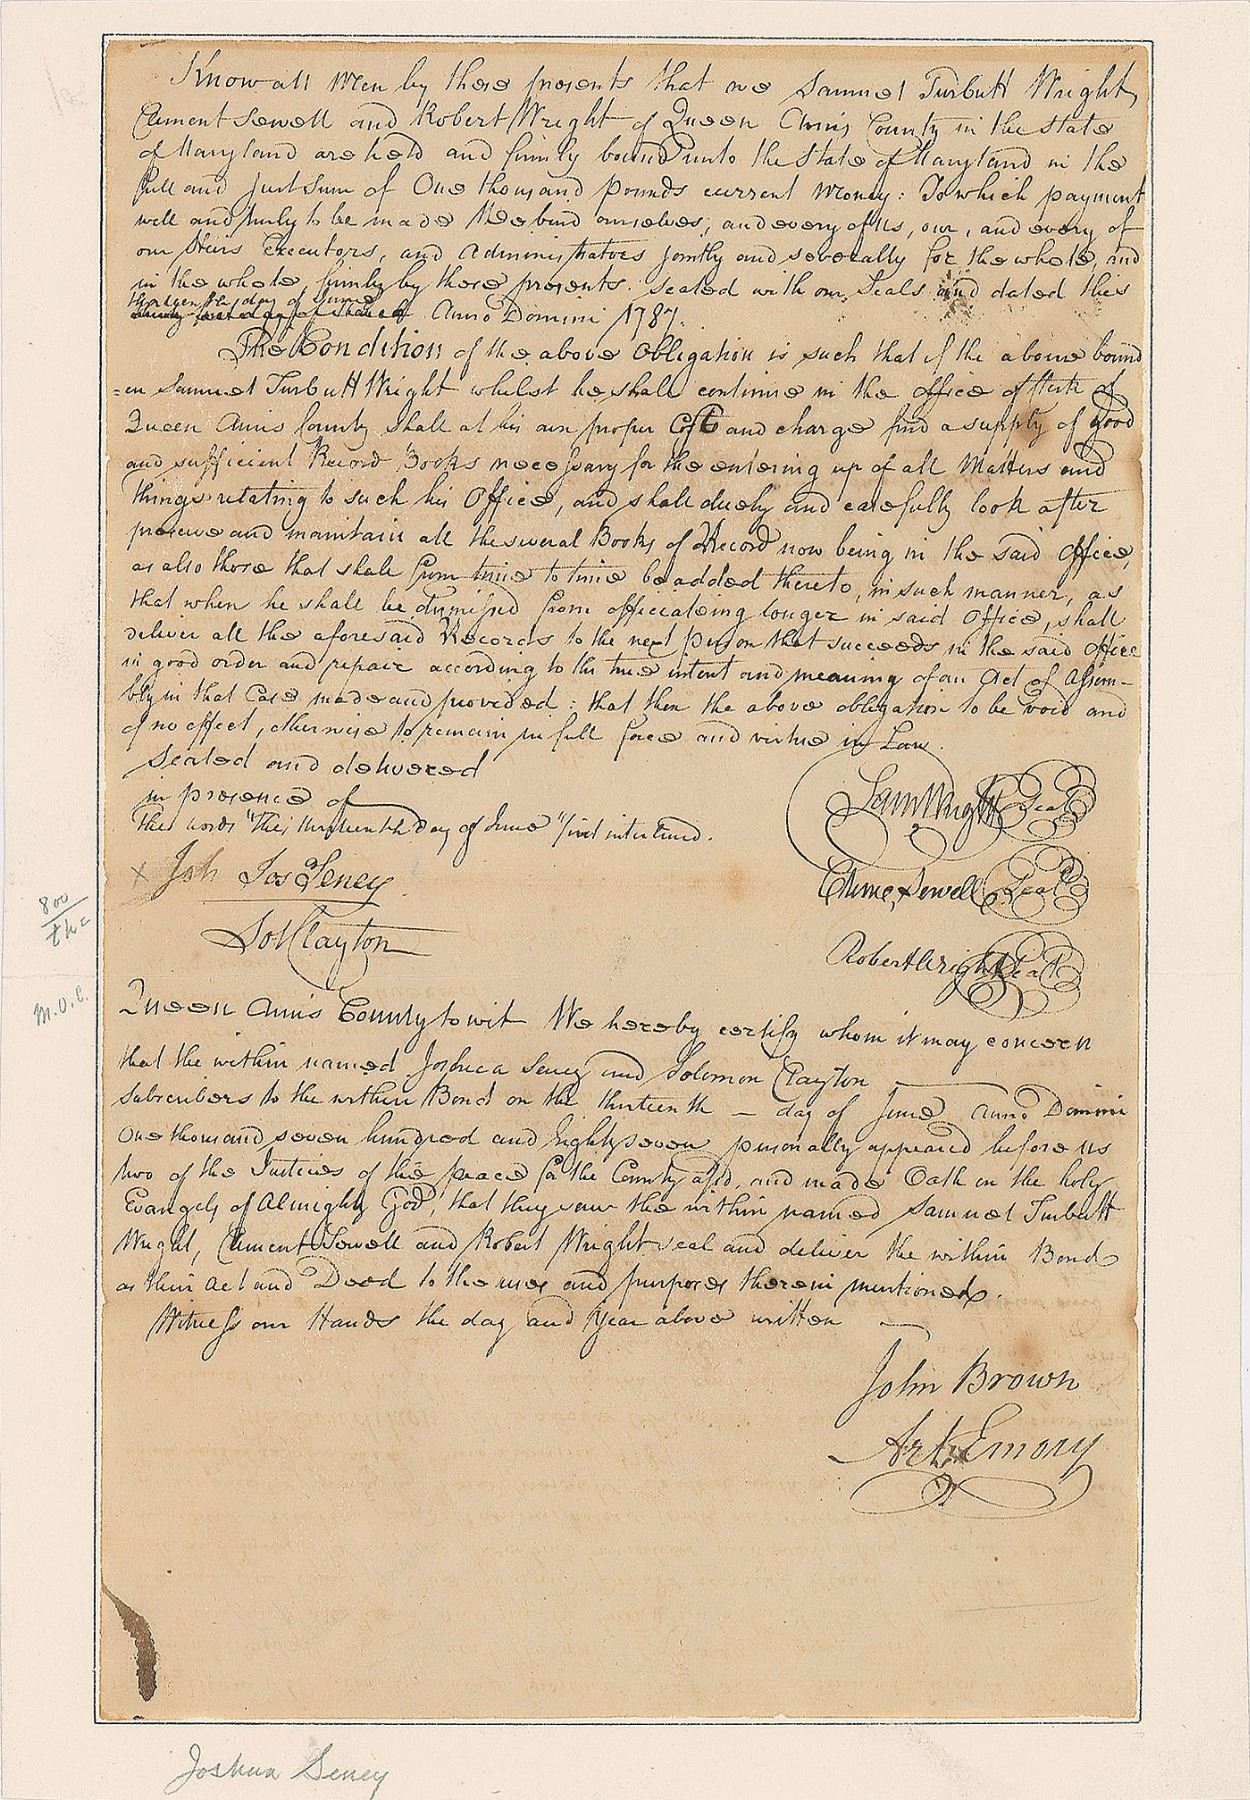 Know all Men by these presents that we Samuel Turbutt Wright,
Clement Sewell and Robert Wright of Queen Anns County in the State
of Maryland are held and firmly bound unto the State of Maryland in the
full and Just Sum of One thousand pounds current money: To which payment
well and truly to be made We bind ourselves, and every of us, our, and every of
our Heirs Executors, and Administrators jointly and severally for the whole, and
in the whole, firmly by these presents. Sealed with our Seals and dated this
thirteenth day of June
Anno Domini 1787.
The Condition of the above obligation is such that if the above bound
=en Samuel Turbutt Wright whilst he shall continue in the office of Clerk of
Queen Anns County shall at his own proper Cost and charge find a supply of good
and sufficient Record Books necessary for the entering up of all Matters and
things relating to such his Office, and shall duely and carefully look after
preserve and maintain all the several Books of Record now being in the said Office,
as also those that shall from time to time be added thereto, in such manner, as
that when he shall be dismissed from officiateing longer in said Office, shall
deliver all the aforesaid Records to the next person that succeeds in the said Office
in good order and repair according to the true intent and meaning of an Act of Assem-
bly in that Case made and provided: that then the above obligation to be void and
of no effect, otherwise to remain in full force and virtue in Law.
Sealed and delivered
in presence of
The words "this thirteenth day of June" first interlined.
Sam Wright Seal
x Josh Jos Seney
Clemt. Sewell Seal
800
the
Sol Clayton
Robert Wright Seal
M.O.C.
Queen Anns County to wit We hereby certify whom it may concern
that the within named Joshua Seney and Solomon Clayton
Subscribers to the within Bond on the thirteenth — day of June Anno Domini
One thousand seven hundred and Eighty seven personally appeared before us
two of the Justices of the peace for the County afsd, and made Oath on the holy
Evangels of Almighty God, that they saw the within named Samuel Turbutt
Wright, Clement Sewell and Robert Wright seal and deliver the within Bond
as their Act and Deed to the uses and purposes therein mentioned.
Witness our Hands the day and Year above written
John Brown
Arth Emory
Joshua Seney